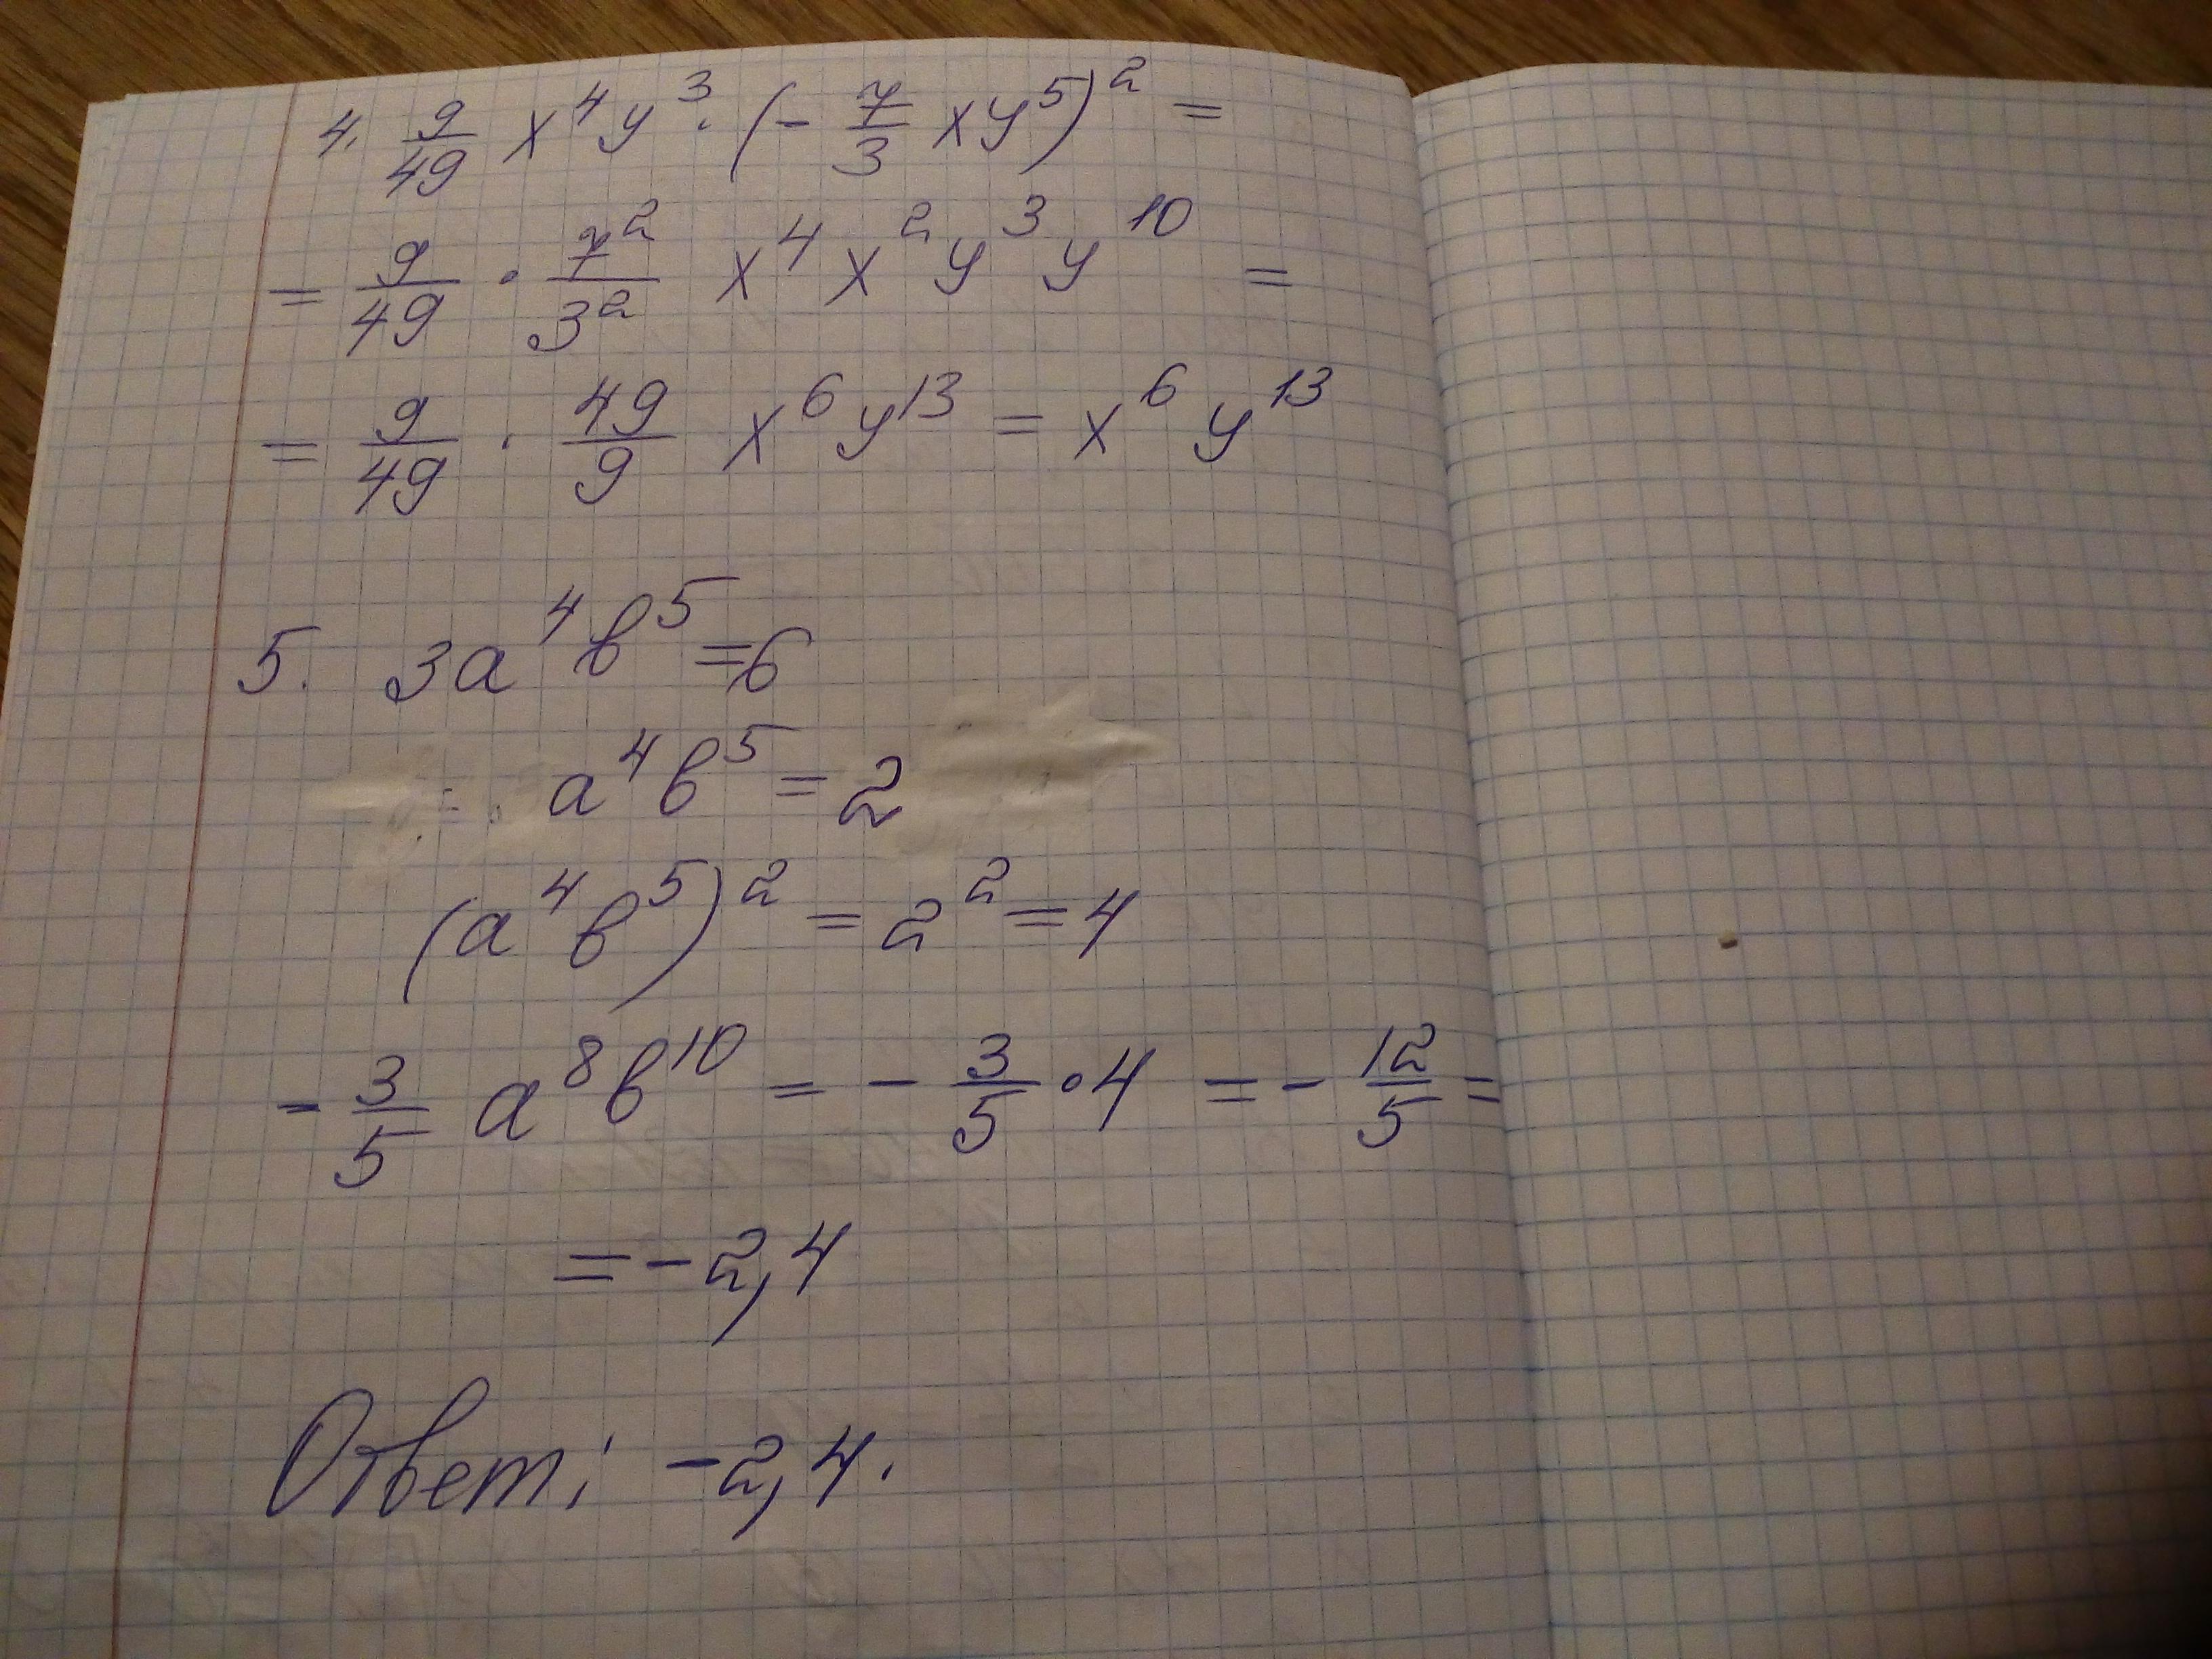 4. 9/49 x⁴y³ · (− 7/3 xy⁵)² =
= 9/49 · 7²/3² x⁴x²y³y¹⁰ =
= 9/49 · 49/9 x⁶y¹³ = x⁶y¹³
5. 3a⁴b⁵ = 6
a⁴b⁵ = 2
(a⁴b⁵)² = 2² = 4
− 3/5 a⁸b¹⁰ = − 3/5 · 4 = − 12/5 =
= −2,4
Ответ: −2,4.